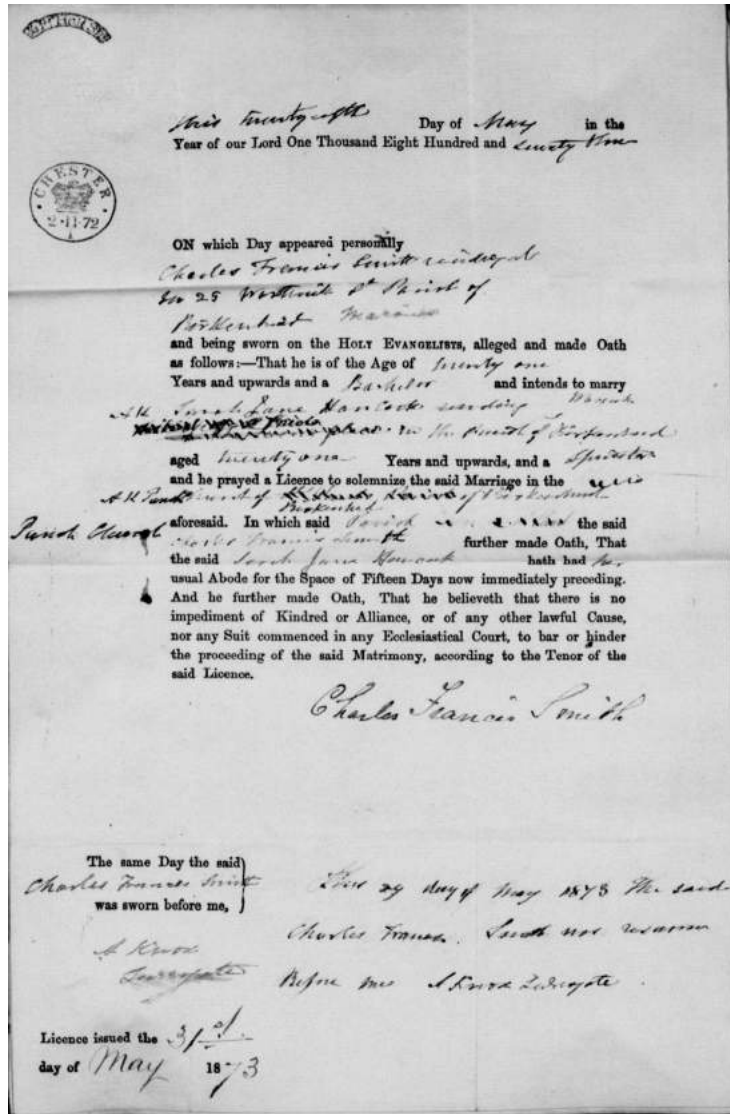 CHESTER
2·11·72
A
this twenty Day of May in the
Year of our Lord One Thousand Eight Hundred and seventy three
ON which Day appeared personally
Charles Francis Smith
Parish of
Birkenhead
and being sworn on the HOLY EVANGELISTS, alleged and made Oath
as follows:—That he is of the Age of twenty one
Years and upwards and a Bachelor and intends to marry
A K Sarah Jane Hancock residing
in the Parish of Birkenhead
aged twenty one Years and upwards, and a Spinster
and he prayed a Licence to solemnize the said Marriage in the
A K Parish of Birkenhead
Birkenhead
Parish Church
aforesaid. In which said Parish the said
Charles Francis Smith further made Oath, That
the said Sarah Jane Hancock hath had her
usual Abode for the Space of Fifteen Days now immediately preceding.
And he further made Oath, That he believeth that there is no
impediment of Kindred or Alliance, or of any other lawful Cause,
nor any Suit commenced in any Ecclesiastical Court, to bar or hinder
the proceeding of the said Matrimony, according to the Tenor of the
said Licence.
Charles Francis Smith
The same Day the said
Charles Francis Smith
was sworn before me,
A Knox
Surrogate
This 29 day of May 1873 the said
Charles Francis Smith was resworn
Before me A Knox Surrogate.
Licence issued the 31st
day of May 1873